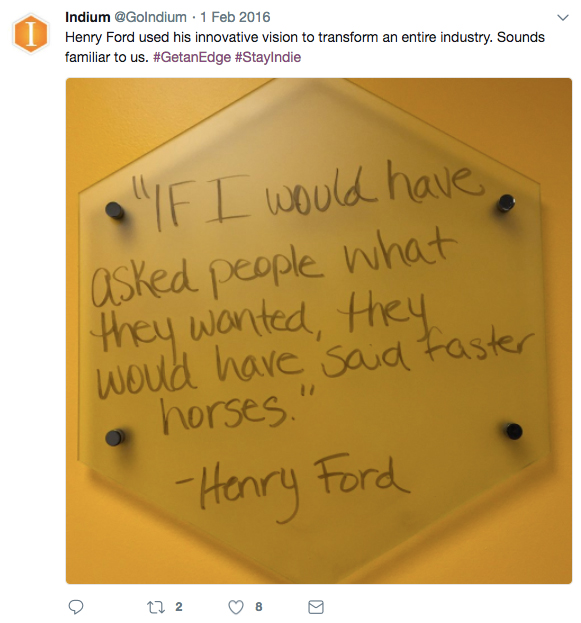 Indium @GoIndium · 1 Feb 2016
Henry Ford used his innovative vision to transform an entire industry. Sounds
familiar to us. #GetanEdge #StayIndie
I
"IF I would have
asked people what
they wanted, they
would have said faster
horses."
-Henry Ford
2 8